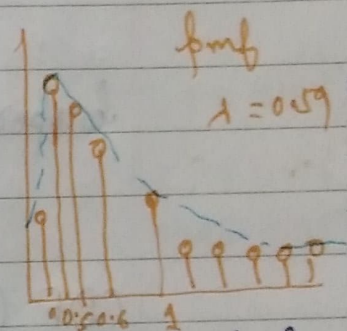 pmf
λ = 0.59
0 0.5 0.6 1